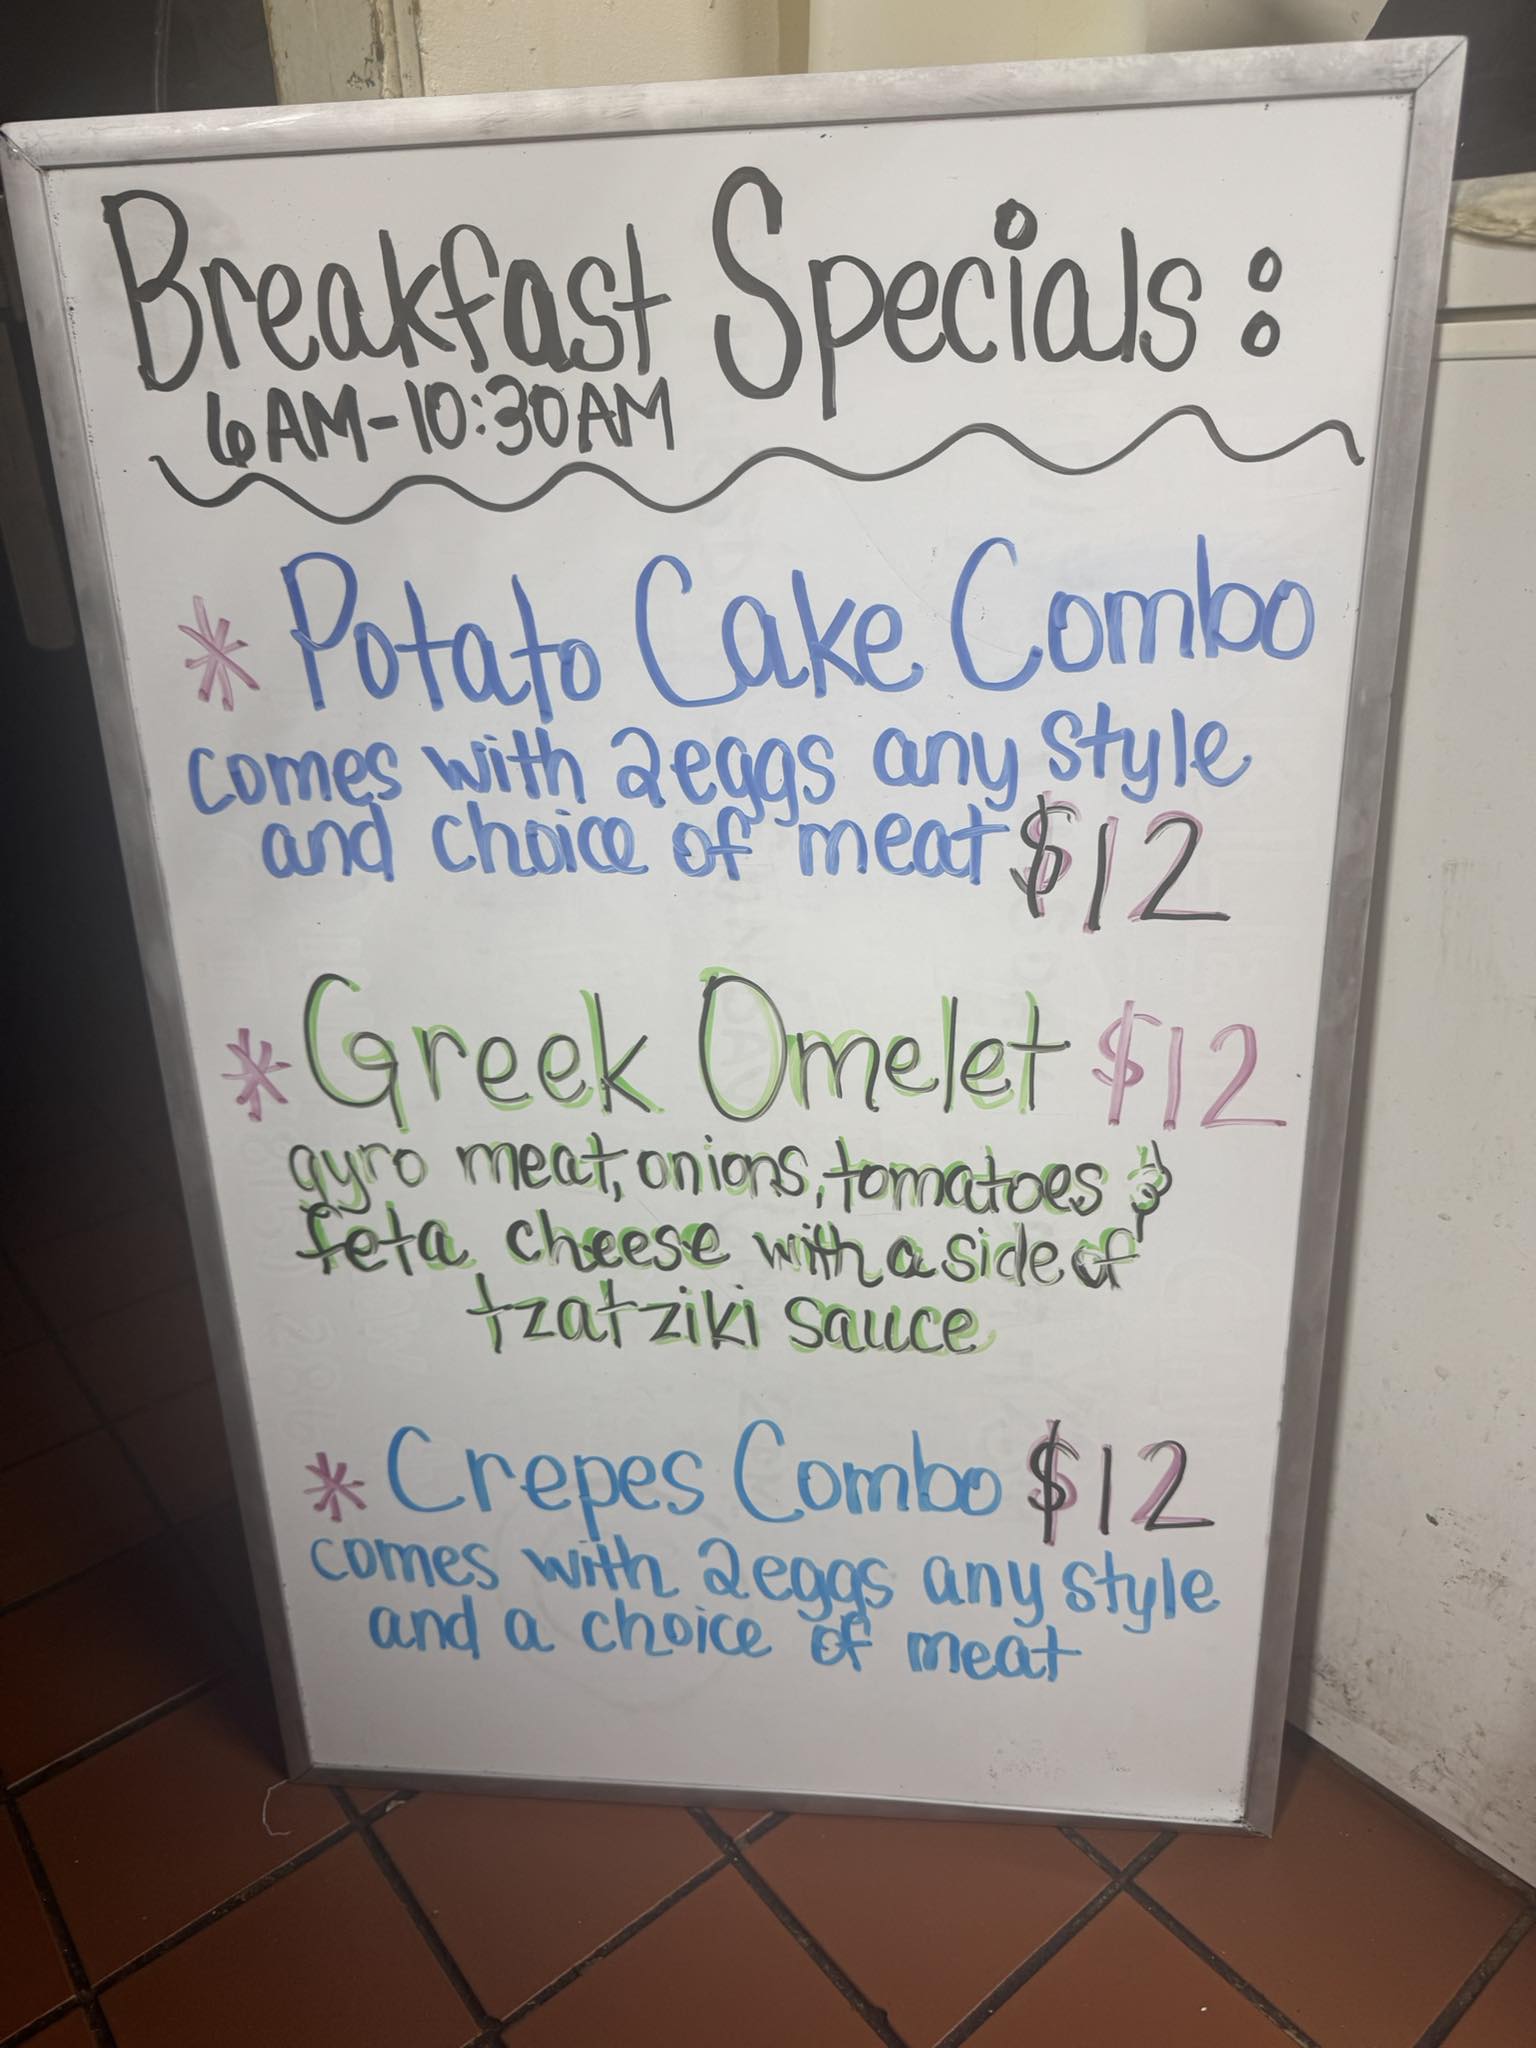 Breakfast Specials:
6AM-10:30AM
* Potato Cake Combo
comes with 2eggs any style
and choice of meat $12
* Greek Omelet $12
gyro meat, onions, tomatoes &
feta cheese with a side of
tzatziki sauce
* Crepes Combo $12
comes with 2eggs any style
and a choice of meat